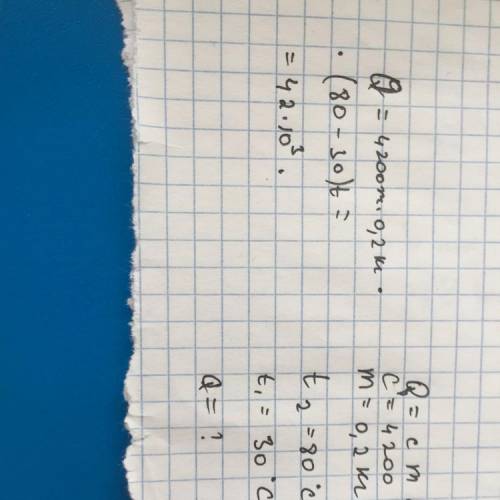 Q = 4200m · 0,2к ·
· (80 - 30)t =
= 42 · 10³ .
Q = c m
c = 4200
m = 0,2к
t₂ = 80°C
t₁ = 30°C
Q = ?